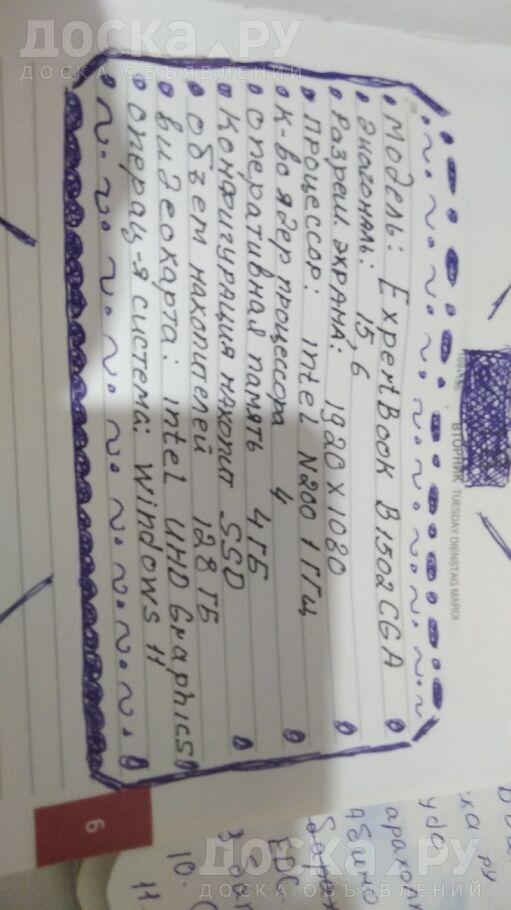 ДОСКА.РУ
ДОСКА ОБЪЯВЛЕНИЙ
ВТОРНИК TUESDAY DIENSTAG MARDI
Модель: ExpertBook B1502CGA
Диагональ: 15,6
Разреш экрана: 1920 x 1080
Процессор: intel N200 1 ГГц
К-во ядер процессора 4
Оперативная память 4ГБ
Конфигурация накопит SSD
Объем накопителей 128 ГБ
Видеокарта: intel UHD Graphics
Операц-я система: Windows 11
6
10.
11.
ДОСКА.РУ
ДОСКА ОБЪЯВЛЕНИЙ